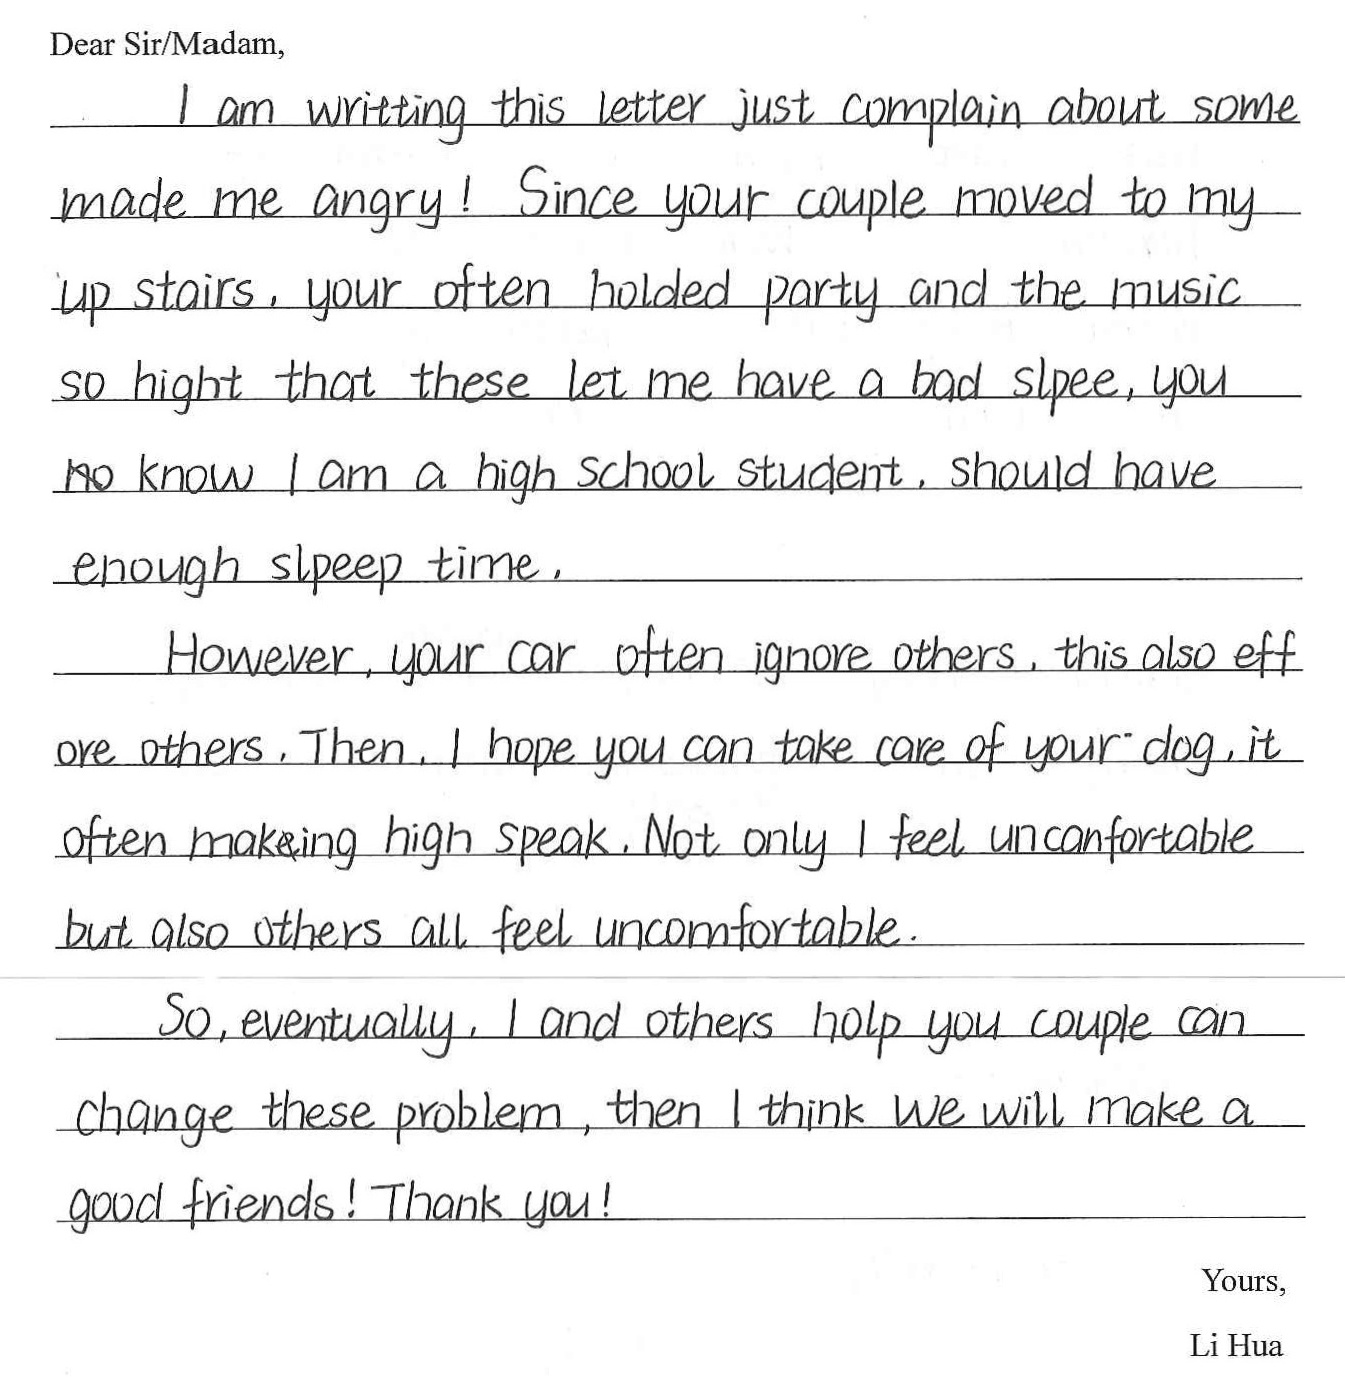 Dear Sir/Madam,
I am writting this letter just complain about some
made me angry! Since your couple moved to my
up stairs, your often holded party and the music
so hight that these let me have a bad slpee, you
no know I am a high school student, should have
enough slpeep time.
However, your car often ignore others, this also eff
ore others. Then, I hope you can take care of your dog, it
often makeing high speak. Not only I feel uncanfortable
but also others all feel uncomfortable.
So, eventually, I and others holp you couple can
change these problem, then I think we will make a
good friends! Thank you!
Yours,
Li Hua